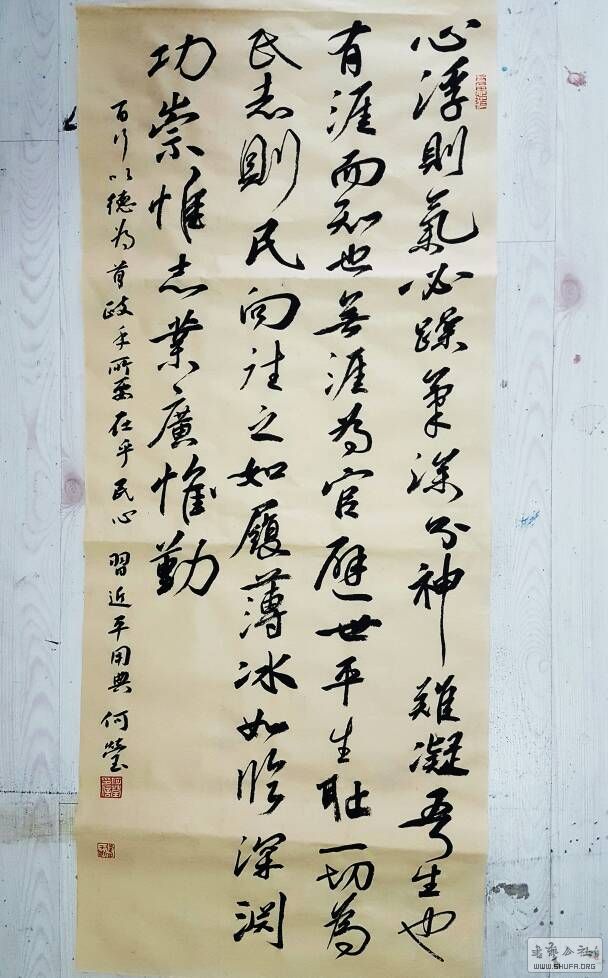 心浮則氣必躁氣躁則神難凝吾生也
有涯而知也無涯為官避世平生耻一切為
民者則民向往之如履薄冰如临深渊
功崇惟志業廣惟勤
百行以德為首政之所要在乎民心 習近平用典 何瑩
書藝公社
WWW.SHUFA.ORG